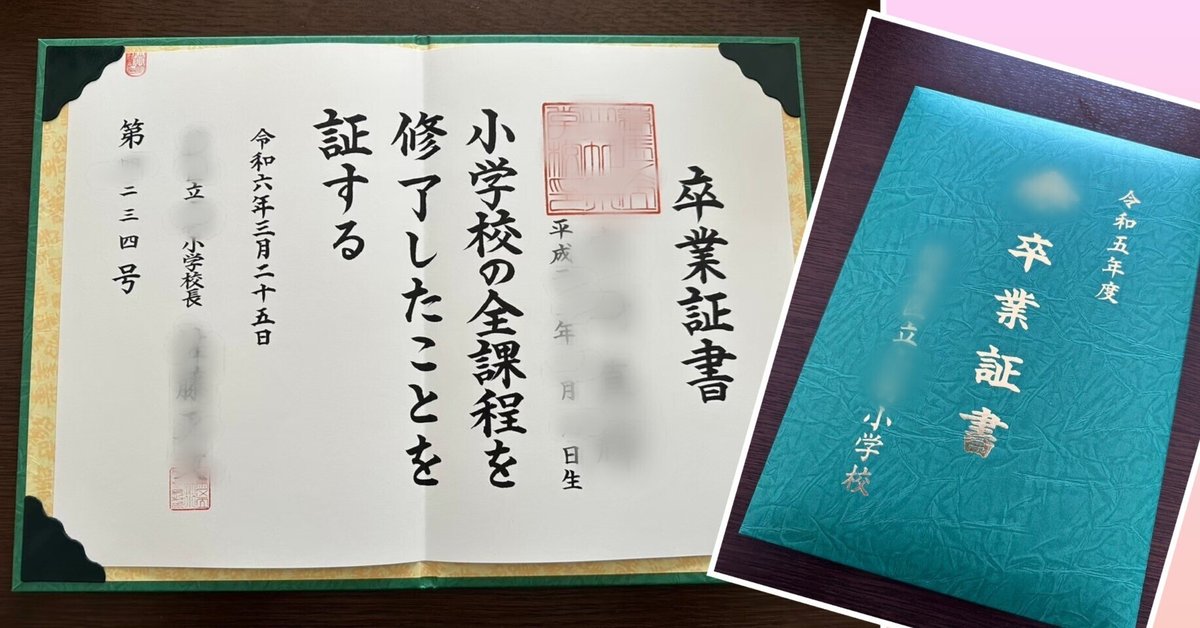 卒業証書
平成 年 月 日生
小学校の全課程を
修了したことを
証する
令和六年三月二十五日
立 小学校長
第 二三四号
令和五年度
卒業証書
立 小学校